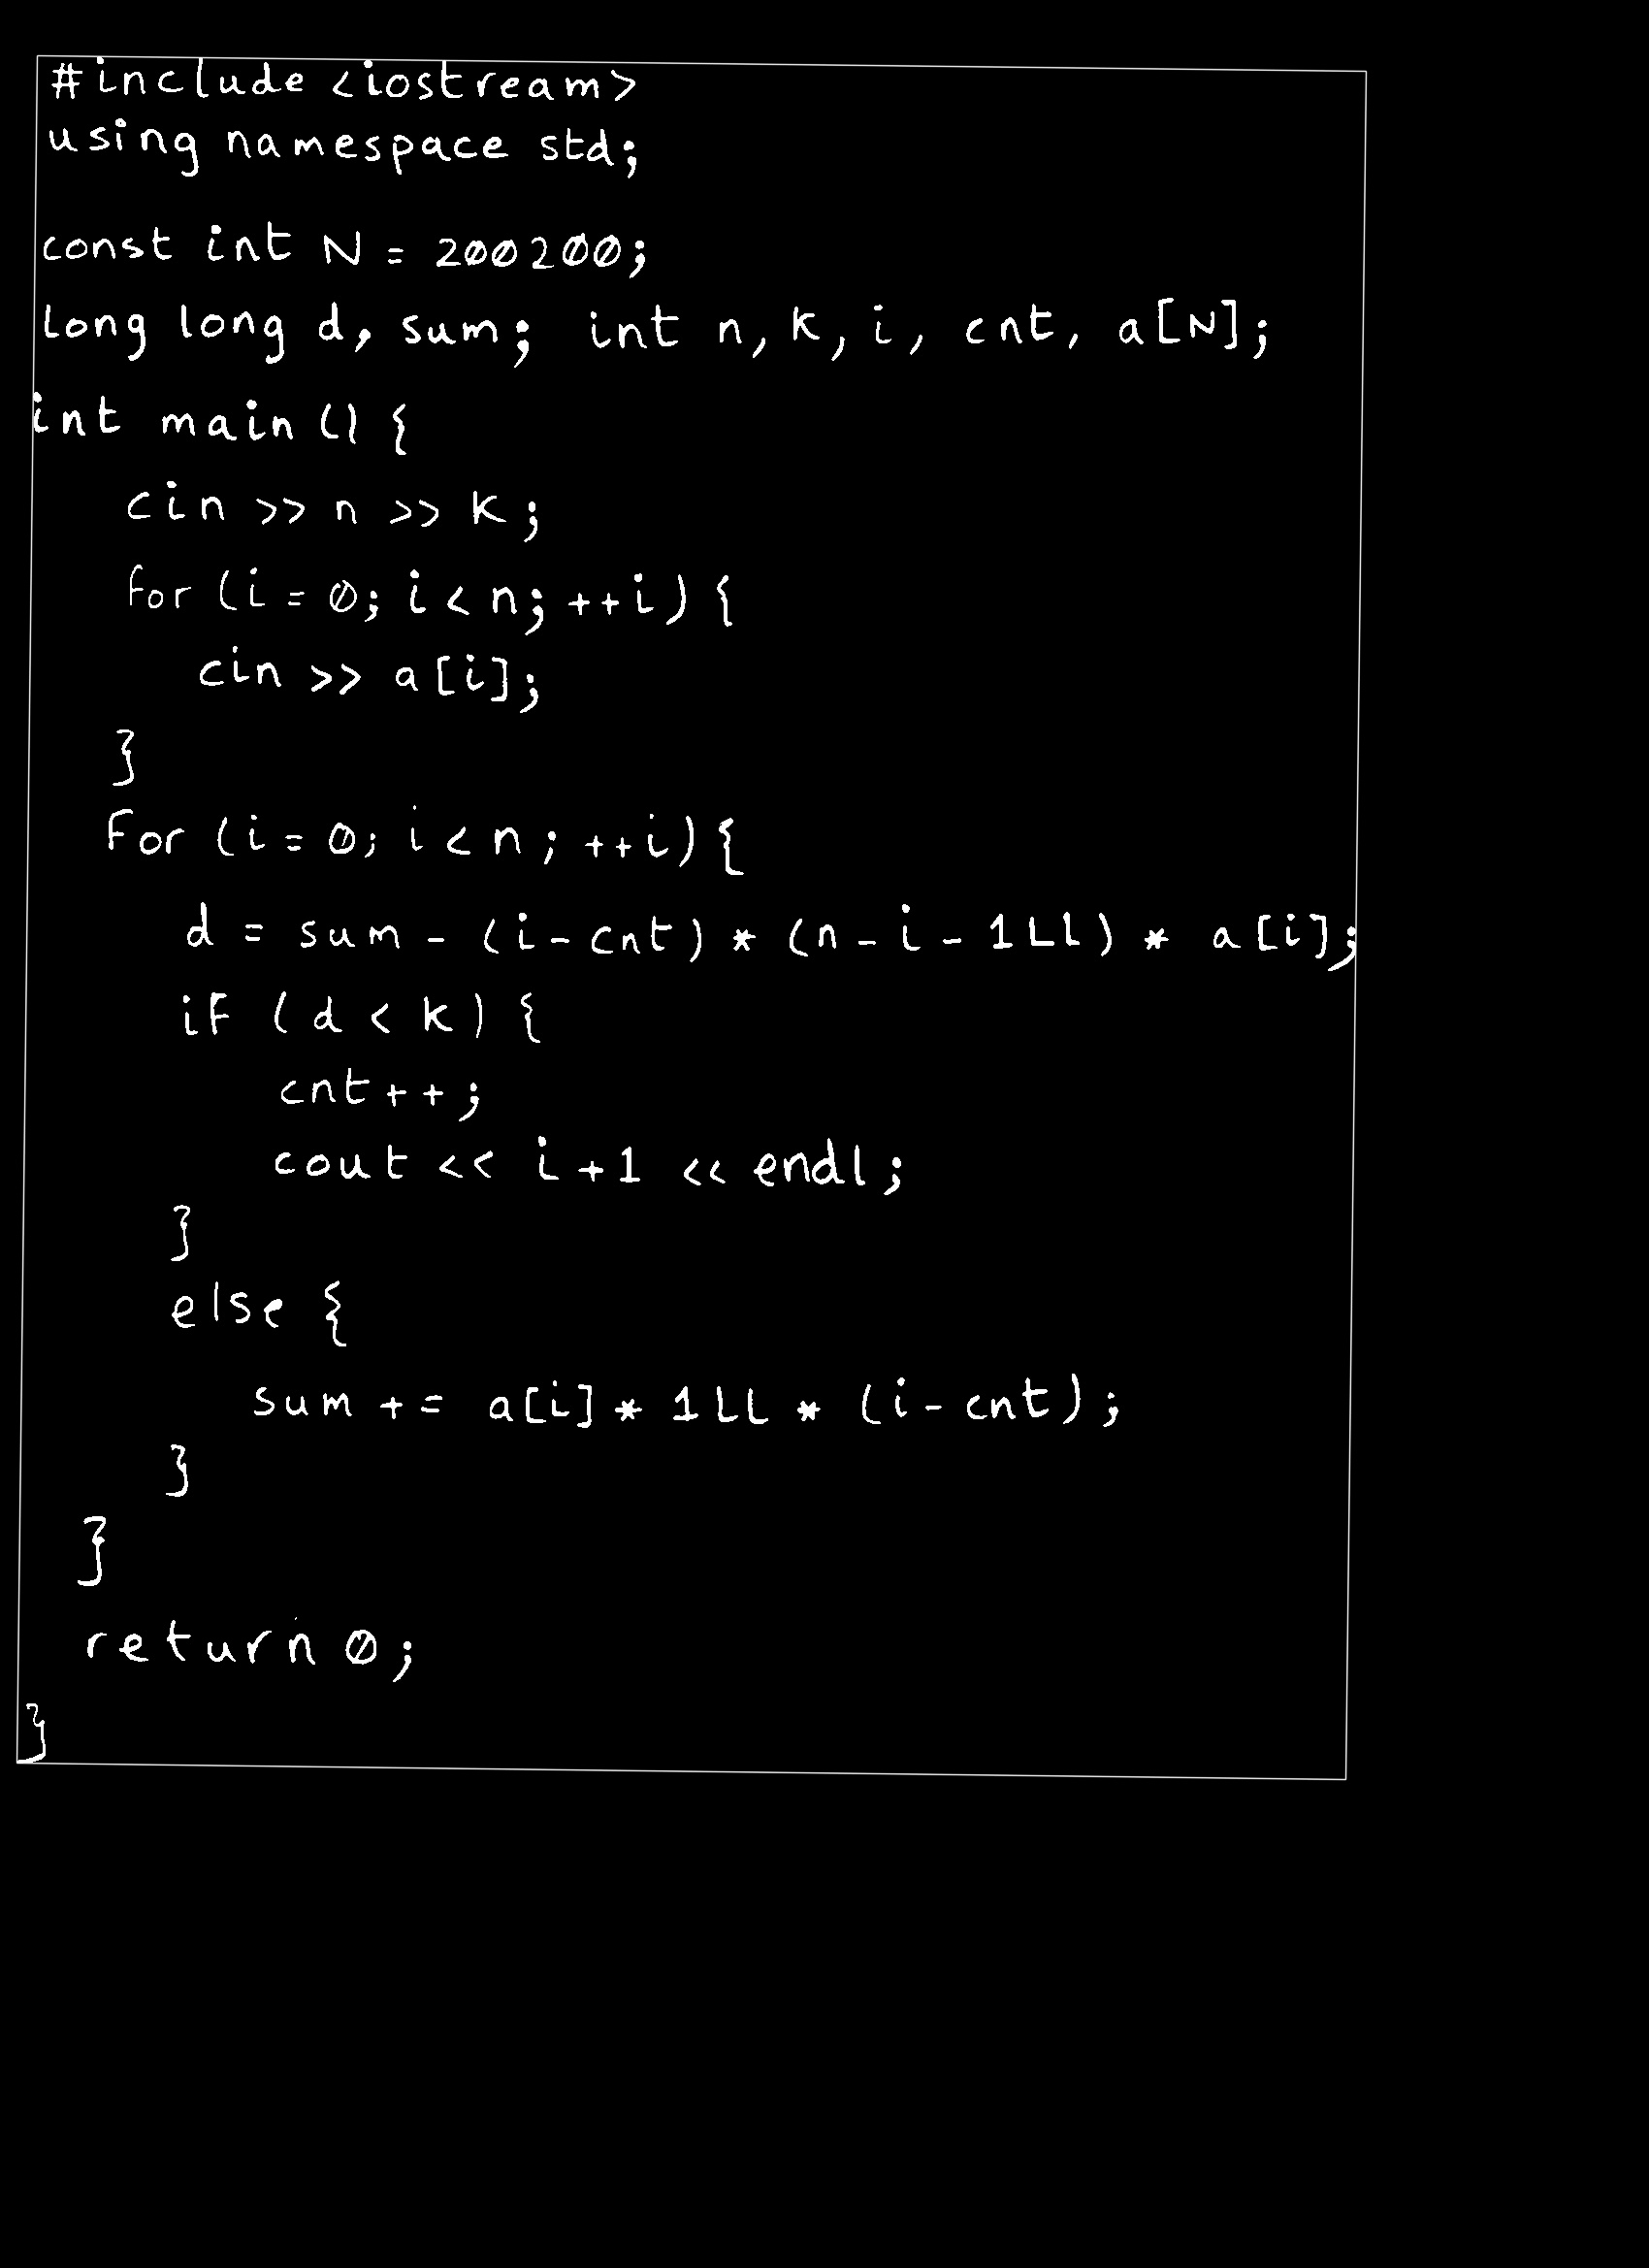 #include <iostream>
using namespace std;
const int N = 200200;
long long d, sum; int n, k, i, cnt, a[N];
int main() {
cin >> n >> k;
for (i = 0; i < n; ++i) {
cin >> a[i];
}
for (i = 0; i < n; ++i) {
d = sum - (i-cnt) * (n - i - 1LL) * a[i];
if (d < k) {
cnt++;
cout << i+1 << endl;
}
else {
sum += a[i] * 1LL * (i-cnt);
}
}
return 0;
}